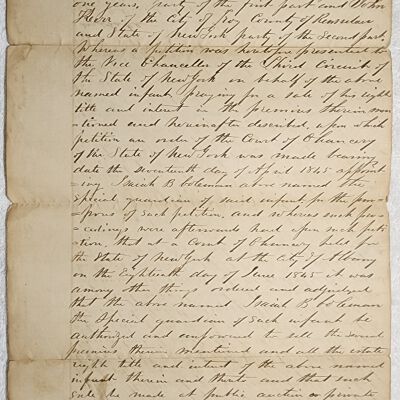 one years, party of the first part and John
Kerr of the City of Troy County of Rensselaer
and State of New York party of the Second part,
Whereas a petition was heretofore presented to
the Vice Chancellor of the Third Circuit of
the State of New York on behalf of the above
named infant, praying for a sale of his right
title and interest in the premises therein men
tioned and hereinafter described, upon which
petition an order of the Court of Chancery
of the State of New York was made bearing
date the seventeenth day of April 1845 appoint
ing Isaiah B Coleman above named the
Special guardian of said infant for the pur
poses of such petition, and whereas such pro
ceedings were afterwards had upon such peti
tion, that at a Court of Chancery held for
the State of New York at the city of Albany
on the Eighteenth day of June 1845 it was
among other things ordered and adjudged
that the above named Isaiah B Coleman
the Special guardian of such infant be
authorized and empowered to sell the said
premises therein mentioned and all the estate
right title and interest of the above named
infant therein and thereto and that such
sale be made at public auction or private